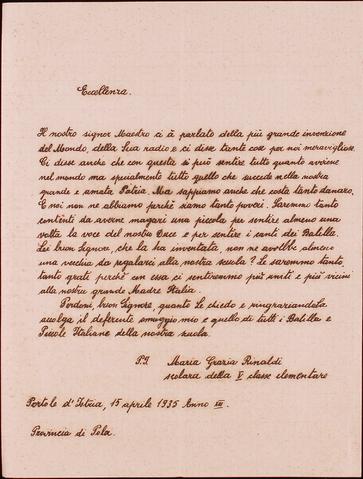 Eccellenza.
Il nostro signor Maestro ci à parlato della più grande invenzione
del Mondo, della Sua radio e ci disse tante cose per noi meravigliose.
Ci disse anche che con questa si può sentire tutto quanto avviene
nel mondo ma specialmente tutto quello che succede nella nostra
grande e amata Patria. Ma sappiamo anche che costa tanto danaro.
E noi non ne abbiamo perchè siamo tanto poveri. Saremmo tanto
contenti da averne magari una piccola per sentire almeno una
volta la voce del nostro Duce e per sentire i canti dei Balilla.
Lei buon Signore, che la ha inventata, non ne avrebbe almeno
una vecchia da regalarci alla nostra scuola? Le saremmo tanto,
tanto grati perchè con essa ci sentiremmo più uniti e più vicini
alla nostra grande Madre Italia.
Perdoni, buon Signore quanto Le chiedo e ringraziandola
accolga il deferente omaggio mio e quello di tutti i Balilla e
Piccole Italiane della nostra scuola.
P.I. Maria Grazia Rinaldi
scolara della V classe elementare
Portole d'Istria, 15 aprile 1935 Anno
Provincia di Pola.